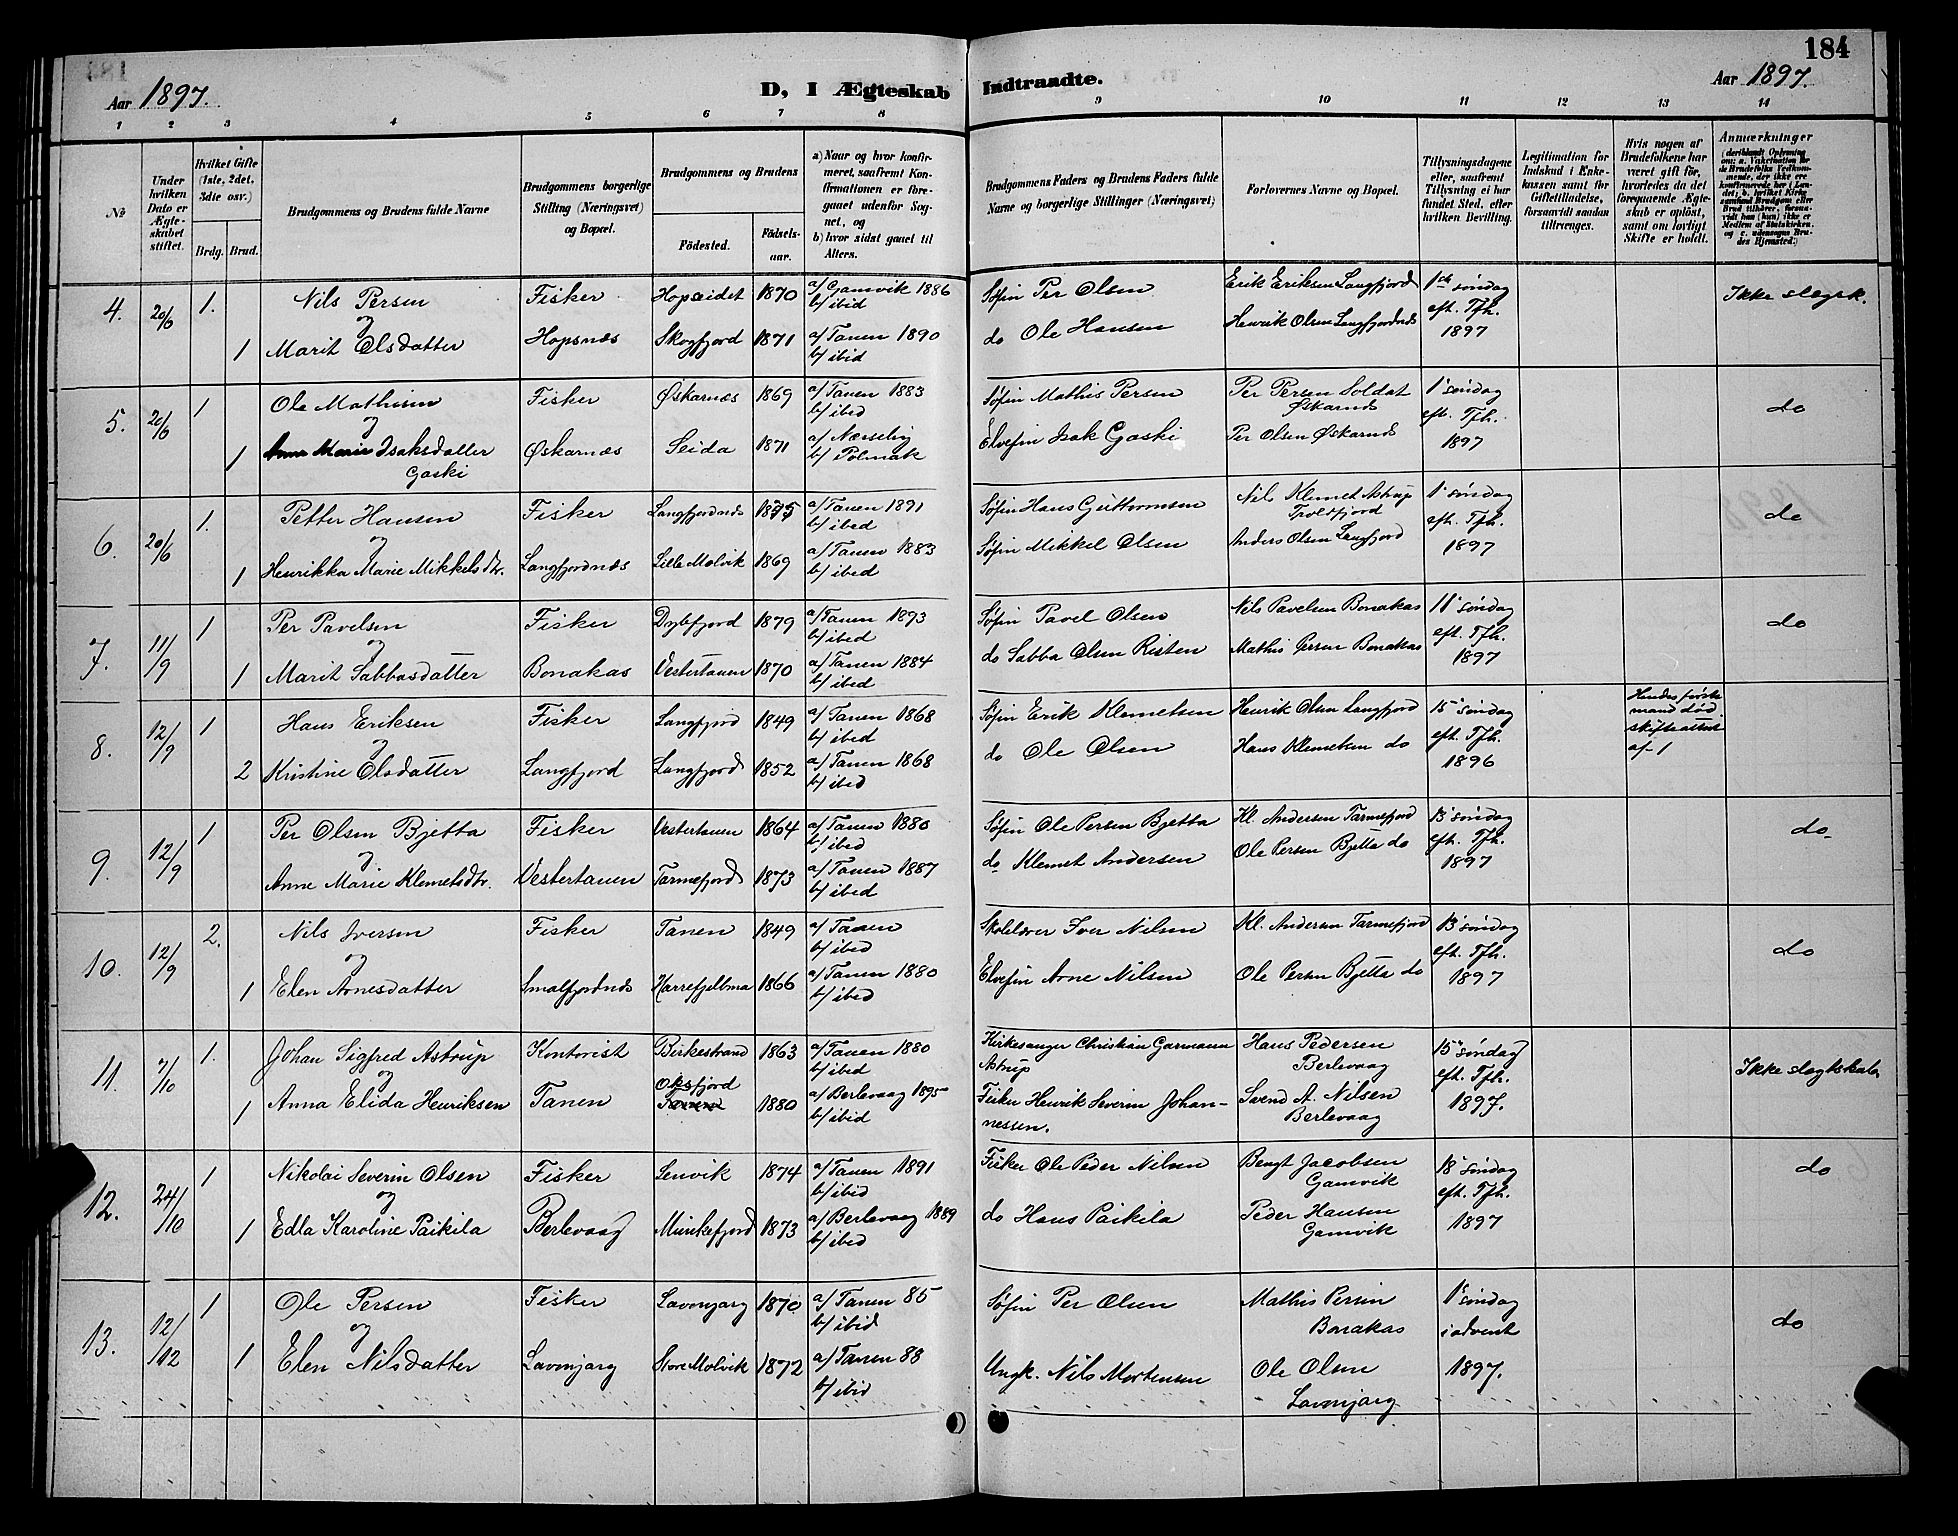 184
Aar 1897.
D, I Ægteskab Indtraadte.
Aar 1897.
1 2 3 4 5 6 7 8 9 10 11 12 13 14
№
Under hvilken Dato er Ægteskabet stiftet.
Hvilket Gifte (1ste, 2det, 3die osv.)
Brdg. Brud.
Brudgommens og Brudens fulde Navne
Brudgommens borgerlige Stilling (Næringsvei) og Bopæl.
Brudgommens og Brudens
Födested.
Födselsaar.
a) Naar og hvor konfirmeret, saafremt Konfirmationen er foregaaet udenfor Sognet, og
b) hvor sidst gaaet til Alters.
Brudgommens Faders og Brudens Faders fulde Navne og borgerlige Stillinger (Næringsvei)
Forlovernes Navne og Bopæl.
Tillysningsdagene eller, saafremt Tillysning ei har fundet Sted, efter hvilken Bevilling.
Legitimation for Indskud i Enkekassen samt for Giftetilladelse, forsaavidt saadan tiltrænges.
Hvis nogen af Brudefolkene har været gift för, hvorledes da det foregaaende Ægteskab er oplöst, samt om lovligt Skifte er holdt.
Anmærkninger
4. 20/6 1. Nils Persen Fisker Hopseidet 1870 a/ Gamvik 1886 Søfin Per Olsen Erik Eriksen Langfjord 1ste søndag Ikke slegsk.
og b/ ibid eft. Tfh.
1 Marit Olsdatter Hopsnæs Skogfjord 1871 a/ Tanen 1890 do Ole Hansen Henrik Olsen Langfjordnæs 1897
b/ ibid
5. 20/6 1 Ole Mathisen Fisker Øskarnæs 1869 a/ Tanen 1883 Søfin Mathis Persen Per Persen Soldat 1' søndag do
og b/ ibid Øskarnæs eft. Tfh.
1 Anne Marie Isaksdatter Øskarnæs Seida 1871 a/ Nærseling Elvefin Isak Gaski Per Olsen Øskarnæs 1897
Gaski b/ Polmak
6. 20/6 1. Petter Hansen Fisker Langfjordnæs 1875 a/ Tanen 1891 Søfin Hans Guttormsen Nils Klemet Astrup 1' søndag do
og b/ ibed Troldfjord eft. Tfh.
1 Henrikka Marie Mikkelsdtr. Langfjordnæs Lille Molvik 1869 a/ Tanen 1883 Søfin Mikkel Olsen Anders Olsen Langfjord 1897
b/ ibed
7. 11/9 1 Per Pavelsen Fisker Dybfjord 1879 a/ Tanen 1893 Søfin Pavel Olsen Nils Pavelsen Bonakas 11' søndag do
og b/ ibed eft. Tfh.
1 Marit Sabbasdatter Bonakas Vestertanen 1870 a/ Tanen 1884 do Sabba Olsen Risten Mathis Persen Bonakas 1897
b/ ibed
8. 12/9 1 Hans Eriksen Fisker Langfjord 1849 a/ Tanen 1868 Søfin Erik Klemetsen Henrik Olsen Langfjord 15' søndag Hendes første
og b/ ibed eft. Tfh. mand død
2 Kristine Olsdatter Langfjord Langfjord 1852 a/ Tanen 1868 do Ole Olsen Hans Klemetsen do 1896 skifteattest
b/ ibed af 1
9. 12/9 1 Per Olsen Bjetta Fisker Vestertanen 1864 a/ Tanen 1880 Søfin Ole Persen Bjetta Kl. Andersen Tarmefjord 13' søndag do.
og b/ ibed eft. Tfh.
Anne Marie Klemetsdtr. Vestertanen Tarmefjord 1873 a/ Tanen 1887 do. Klemet Andersen Ole Persen Bjetta do 1897
b/ ibed
10. 12/9 2. Nils Iversen Fisker Tanen 1849 a/ Tanen Skolelærer Iver Nilsen Kl. Andersen Tarmefjord 13' søndag do
og b/ ibed eft. Tfh.
1 Elen Arnesdatter Smalfjordnæs Harrefjellbma 1866 a/ Tanen 1880 Elvefin Arne Nilsen Ole Persen Bjetta do 1897
b/ ibed
11. 7/10 1. Johan Sigfred Astrup Kontorist Birkestrand 1863 a/ Tanen 1880 Kirkesanger Christian Garmann Hans Pedersen 15' søndag Ikke slegtskab
og b/ ibed Astrup Berlevaag eft. Tfh.
1 Anna Elida Henriksen Tanen Oksfjord Tanen 1880 a/ Berlevaag 1895 Fisker Henrik Severin Johan- Svend A. Nilsen 1897.
b/ ibid nessen. Berlevaag
12. 24/10 1 Nikolai Severin Olsen Fisker Lenvik 1874 a/ Tanen 1891 Fisker Ole Peder Nilsen Bengt Jacobsen 18' søndag do
og b/ ibid Gamvik eft. Tfh.
1 Edla Karoline Paikila Berlevaag Munkefjord 1873 a/ Berlevaag 1889 do Hans Paikila Peder Hansen 1897
b/ ibed Gamvik
13. 12/12 1 Ole Persen Fisker Lavonjarg 1870 a/ Tanen 85 Søfin Per Olsen Mathis Persen 1' søndag do
og b/ ibid Bonakas i advent
1 Elen Nilsdatter Lavonjarg Store Molvik 1872 a/ Tanen 88 Ungk. Nils Mortensen Ole Olsen 1897.
b/ ibid Lavonjarg